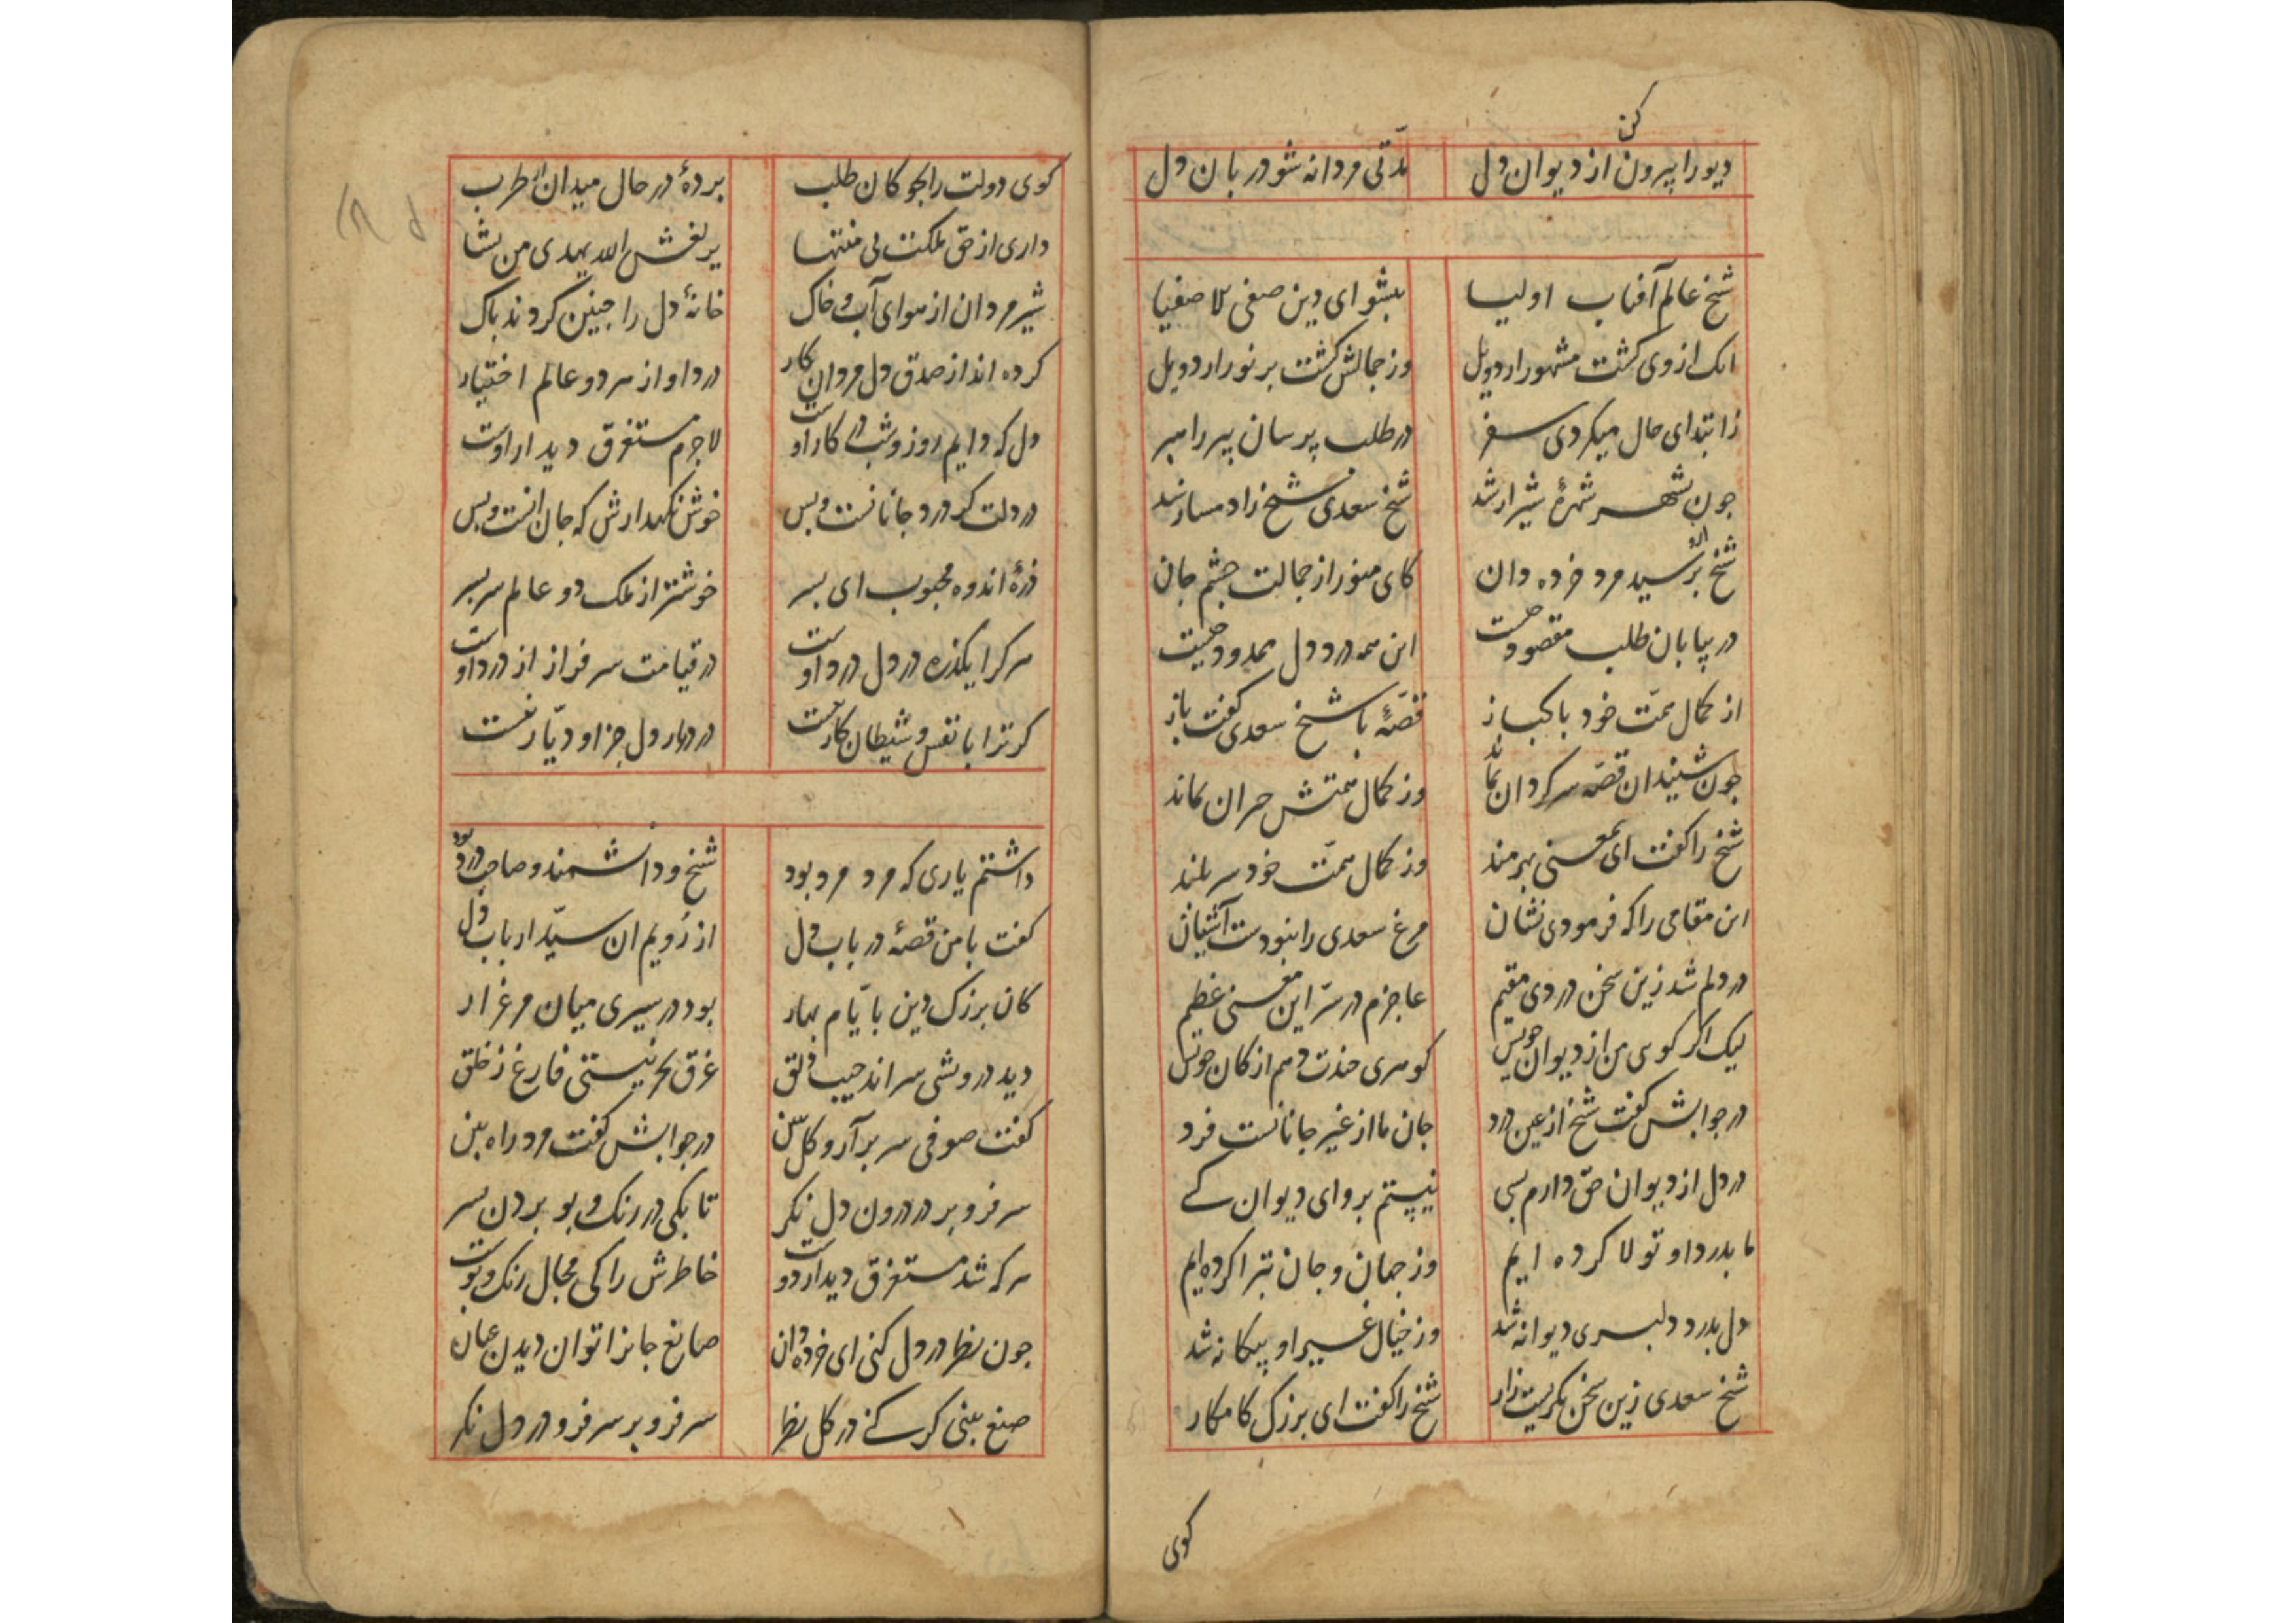 کن
دیو را بیرون از دیوان دل مدّتی مردانه شو دربان دل
شیخ عالم آفتاب اولیا بشنو ای دین صفی للاصفیا
انک از وی کشت مشهور اردویل وز جمالش کشت بر نور اردویل
زابتدای حال میکردی سفر در طلب پرسان پیر راهبر
جون بشهر شهرهٔ شیراز شد شیخ سعدی شیخ را دمساز شد
شیخ را برسید مرد خرده دان کای منور از جمالت جشم جان
در بیابان طلب مقصود جیست این همه درد دل ممدود جیست
از کمال همّت خود باکباز قصّهٔ با شیخ سعدی کفت باز
جون شنید ان قصّه سرکردان بماند وز کمال همتش حیران بماند
شیخ را کفت ای بمعنی بهرمند وز کمال همّت خود سربلند
این مقامی را که فرمودی نشان مرغ سعدی را نبودست آشیان
در دلم شد زین سخن دردی مقیم عاجزم در سرّ این معنی عظیم
لیک اکر کویی من از دیوان خویش کوهری جندت دهم از کان خویش
در جوابش کفت شیخ از عین درد جان ما از غیر جانانست فرد
در دل از دیوان حق دارم بسی نیستم بروای دیوان کسے
ما بدرد او تولا کرده ایم وز جهان و جان تبرا کرده ایم
دل بدرد دلبری دیوانه شد وز خیال غیر او بیکانه شد
شیخ سعدی زین سخن بکریست زار شیخ را کفت ای بزرک کامکار
کوی
کوی دولت را بجوکان طلب بردهٔ در حال میدان از طرب
داری از حق ملکت بی منتها یرلغش الله یهدی من یشا
شیر مردان از هوای آب و خاک خانهٔ دل را جنین کردند باک
کرده اند از صدق دل مردان کار درد او از هر دو عالم اختیار
دل که دایم روز و شب در کار اوست لاجرم مستغرق دیدار اوست
در دلت کر درد جانانست و بس خوش نکهدارش که جان انست و بس
ذرهٔ اندوه محبوب ای بسر خوشتر از ملک دو عالم سر بسر
هرکرا یکذره در دل درد اوست در قیامت سرفراز از درد اوست
کر ترا با نفس و شیطان کار نیست در دیار دل جز او دیّار نیست
داشتم یاری که مرد مرد بود شیخ و دانشمند و صاحب درد بود
کفت با من قصهٔ در باب دل از رُویم ان سیّد ارباب دل
کان بزرک دین بایّام بهار بود در سیری میان مرغزار
دید درویشی سر اندر جیب دلق غرق بحر نیستی فارغ ز خلق
کفت صوفی سر برآر و کل ببین در جوابش کفت مرد راه بین
سر فرو بر در درون دل نکر تا بکی در رنک و بو بردن بسر
هرکه شد مستغرق دیدار دوست خاطرش را کی مجال رنک و بوست
جون نظر در دل کنی ای خرده دان صانع جانرا توان دیدن عیان
صنع بینی کر کنے در کل نظر سر فرو بر سر فرو در دل نکر